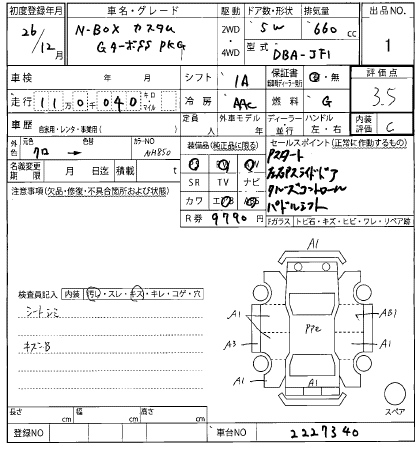 初度登録年月 車名・グレード 駆動 ドア数・形状 排気量 出品NO
26/12月 N-BOX カスタム 2WD 5 W 660 cc 1
Gターボ SS PKG 4WD 型式 DBA-JF1
車検 年 月 シフト IA 保証書 有・無 評価点
走行 11万0千040 キロ・マイル 冷房 AAC 燃料 G 3.5
定員 外車モデル ディーラー・並行 ハンドル 左・右 内装評価 C
車歴 自家用・レンタ・事業用( ) 人 年
外色 元色 クロ → 色替 カラーNO NH850 装備品(純正品に限る) セールスポイント(正常に動作するもの)
名義変更期限 月 日迄 積載 t
SR TV ナビ
Pスタート
クルーズコントロール
パドルシフト
注意事項(欠品・修復・不具合箇所および状態)
カワ
R券 9790 円
Fガラス トビ石・キズ・ヒビ・ワレ・リペア跡
A1
検査員記入 内装 汚れ・スレ・キズ・キレ・コゲ・穴
シートシミ
A1 AB1
Pte
キズ小B
A3 A1
A1 A1
スペア
長さ cm 幅 cm 高さ cm
登録NO 車台NO 2227340